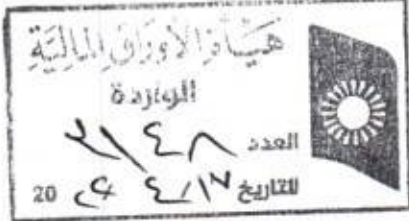 هَيْأَةُ الأَوْرَاقِ المَالِيَّةِ
الواردة
العدد
التاريخ ٤/١٧ 20